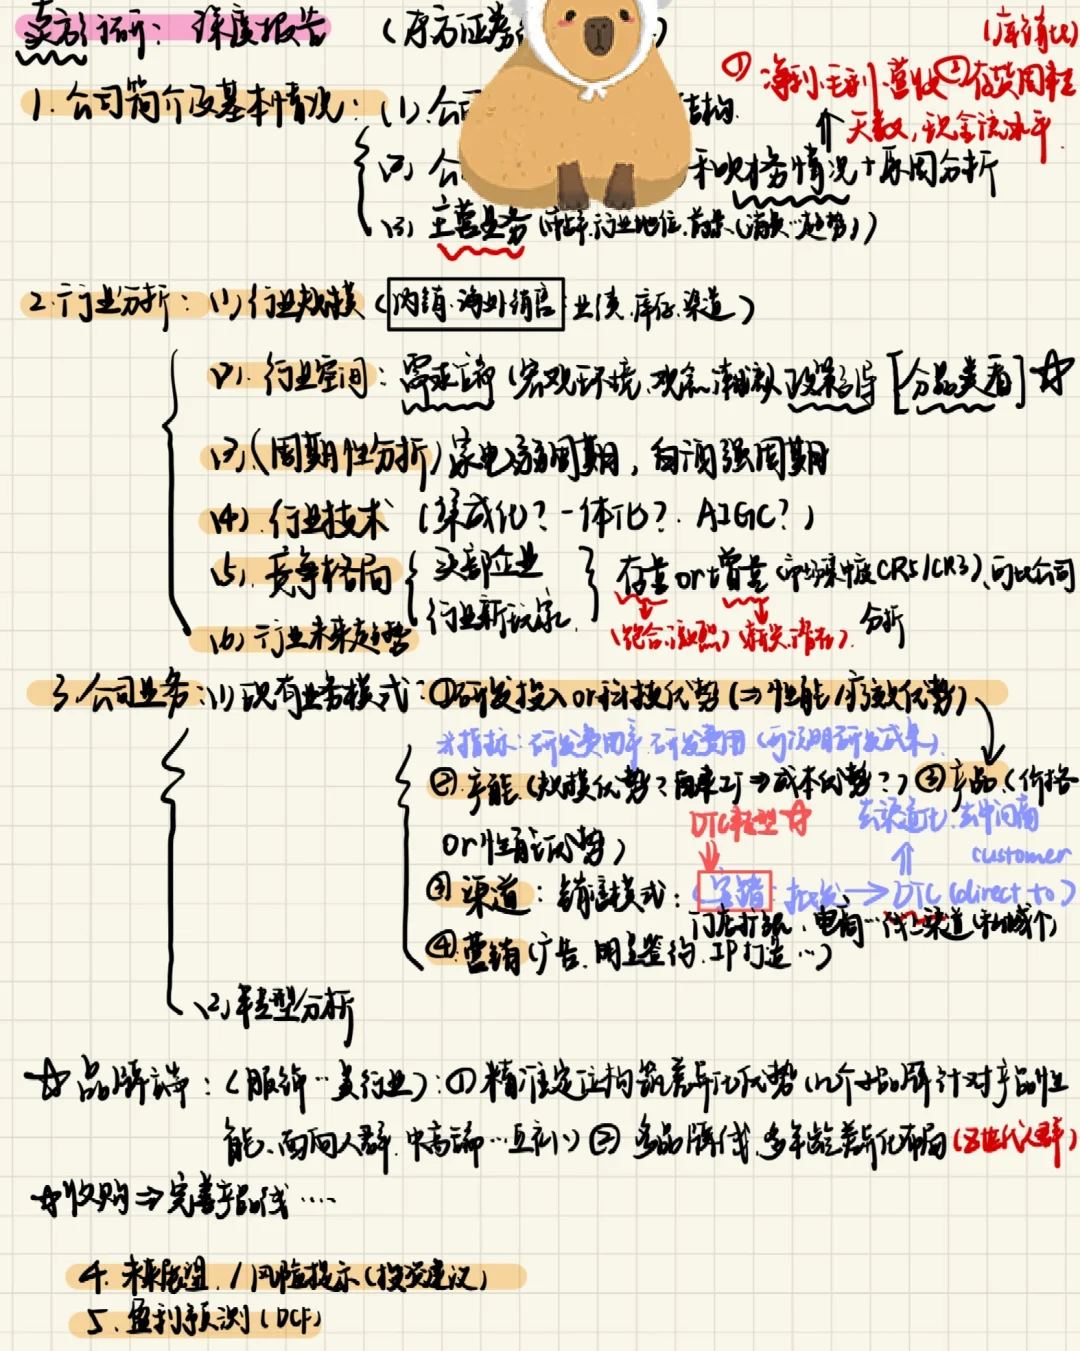 卖方研究：深度报告 (东方证券
(库销比)
① 净利.毛利.营收 ② 存货周转
天数, 现金流水平
1. 公司简介及基本情况: (1). 公 结构.
(2) 公 和财务情况 + 原因分析
(3) 主营业务 (市占率.行业地位.前景(消费…趋势))
2. 行业分析: (1) 行业规模 (内销.海外销售: 业绩.库存.渠道)
(2). 行业空间: 需求端 (宏观环境. 观念潮流. 政策引导 [分品类看] ☆
(3) (周期性分析) 家电弱周期, 白酒强周期
(4). 行业技术 (集成化? 一体化? AIGC?)
(5). 竞争格局 { 头部企业 行业新玩家 } 存量 or 增量 (市场集中度CR5/CR3). 可比公司
分析
(饱合.激烈)
(6) 行业未来趋势
3. 公司业务: (1) 现有业务模式: ①研发投入or科技优势 (⇒性能/功效优势)
※指标: 研发费用率.研发费用 (可说明研发成果).
② 产能. (规模优势? 自建工厂⇒成本优势?) ③产品. (价格
or性能优势)
DTC转型☆ 去渠道化. 去中间商
customer
③ 渠道: 销售模式: (直销: 批发→DTC (direct to)
门店扩张. 电商…线上渠道
④ 营销 (广告. 明星签约. IP打造…)
(2) 转型分析
☆品牌端: (服饰…美行业): ① 精准定位构筑差异化优势 (几个子品牌针对产品性
能、面向人群. 中高端…互补) ② 多品牌线.多年龄差异化布局 (Z世代人群)
☆收购⇒完善产品线…
4. 未来展望. / 风险提示 (投资建议)
5. 盈利预测 (DCF)